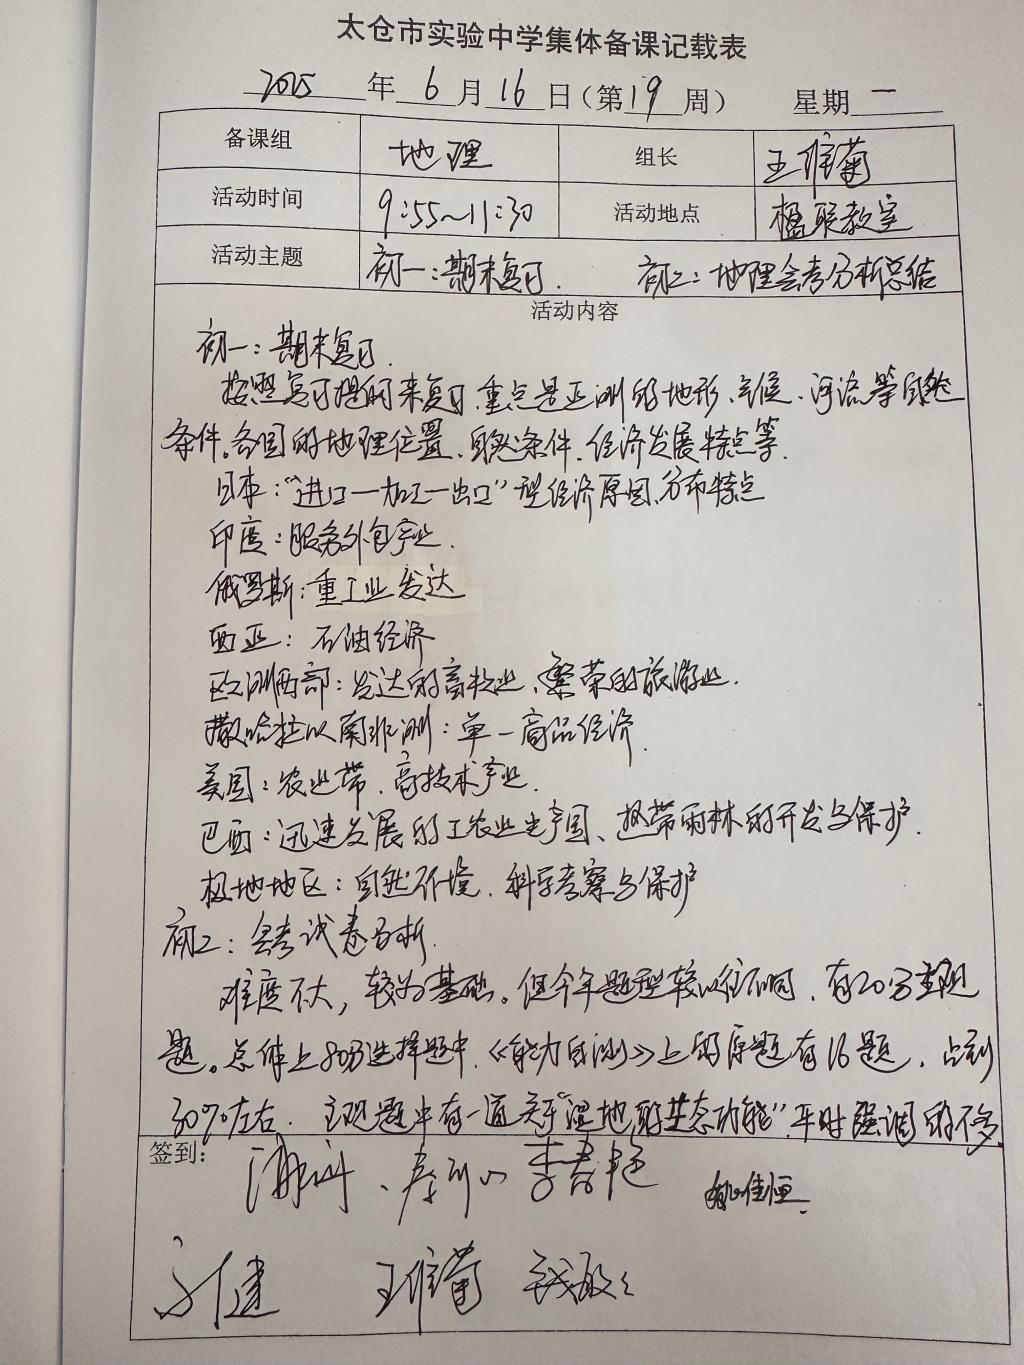 太仓市实验中学集体备课记载表
2025年6月16日（第19周） 星期一
备课组 地理 组长 王维菊
活动时间 9:55~11:30 活动地点 教室
活动主题 初一：期末复习. 初二：地理会考分析总结
活动内容
初一：期末复习.
按照复习提纲来复习.重点是亚洲的地形、气候、河流等自然
条件。各国的地理位置、自然条件、经济发展特点等.
日本：“进口一加工一出口”型经济原因、分布特点
印度：服务外包产业.
俄罗斯：重工业发达
西亚：石油经济
欧洲西部：发达的畜牧业、繁荣的旅游业.
撒哈拉以南非洲：单一商品经济.
美国：农业带、高技术产业.
巴西：迅速发展的工农业生产国、热带雨林的开发与保护.
极地地区：自然环境、科学考察与保护
初二：会考试卷分析.
难度不大，较为基础。但今年题型较以往不同，有20分主观
题。总体上80分选择题中，《能力自测》上的原题有16题，占到
30%左右. 主观题中有一道关于“湿地的生态功能”，平时强调的不多
签到：
李春艳
王维菊